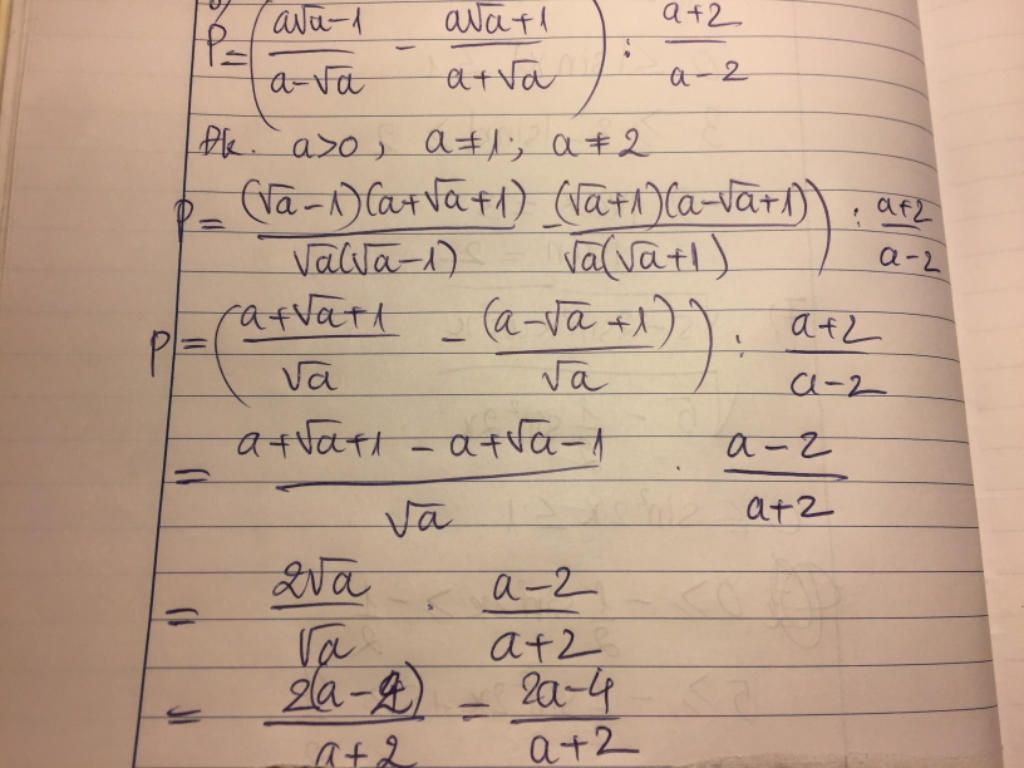 P = ( (a√a-1)/(a-√a) - (a√a+1)/(a+√a) ) : (a+2)/(a-2)
Đk. a>0 ; a≠1 ; a≠2
P = (√a-1)(a+√a+1)/√a(√a-1) - (√a+1)(a-√a+1)/√a(√a+1) ) : (a+2)/(a-2)
P = ( (a+√a+1)/√a - (a-√a+1)/√a ) : (a+2)/(a-2)
= (a+√a+1 - a+√a-1)/√a . (a-2)/(a+2)
= 2√a/√a . (a-2)/(a+2)
= 2(a-2)/(a+2) = (2a-4)/(a+2)